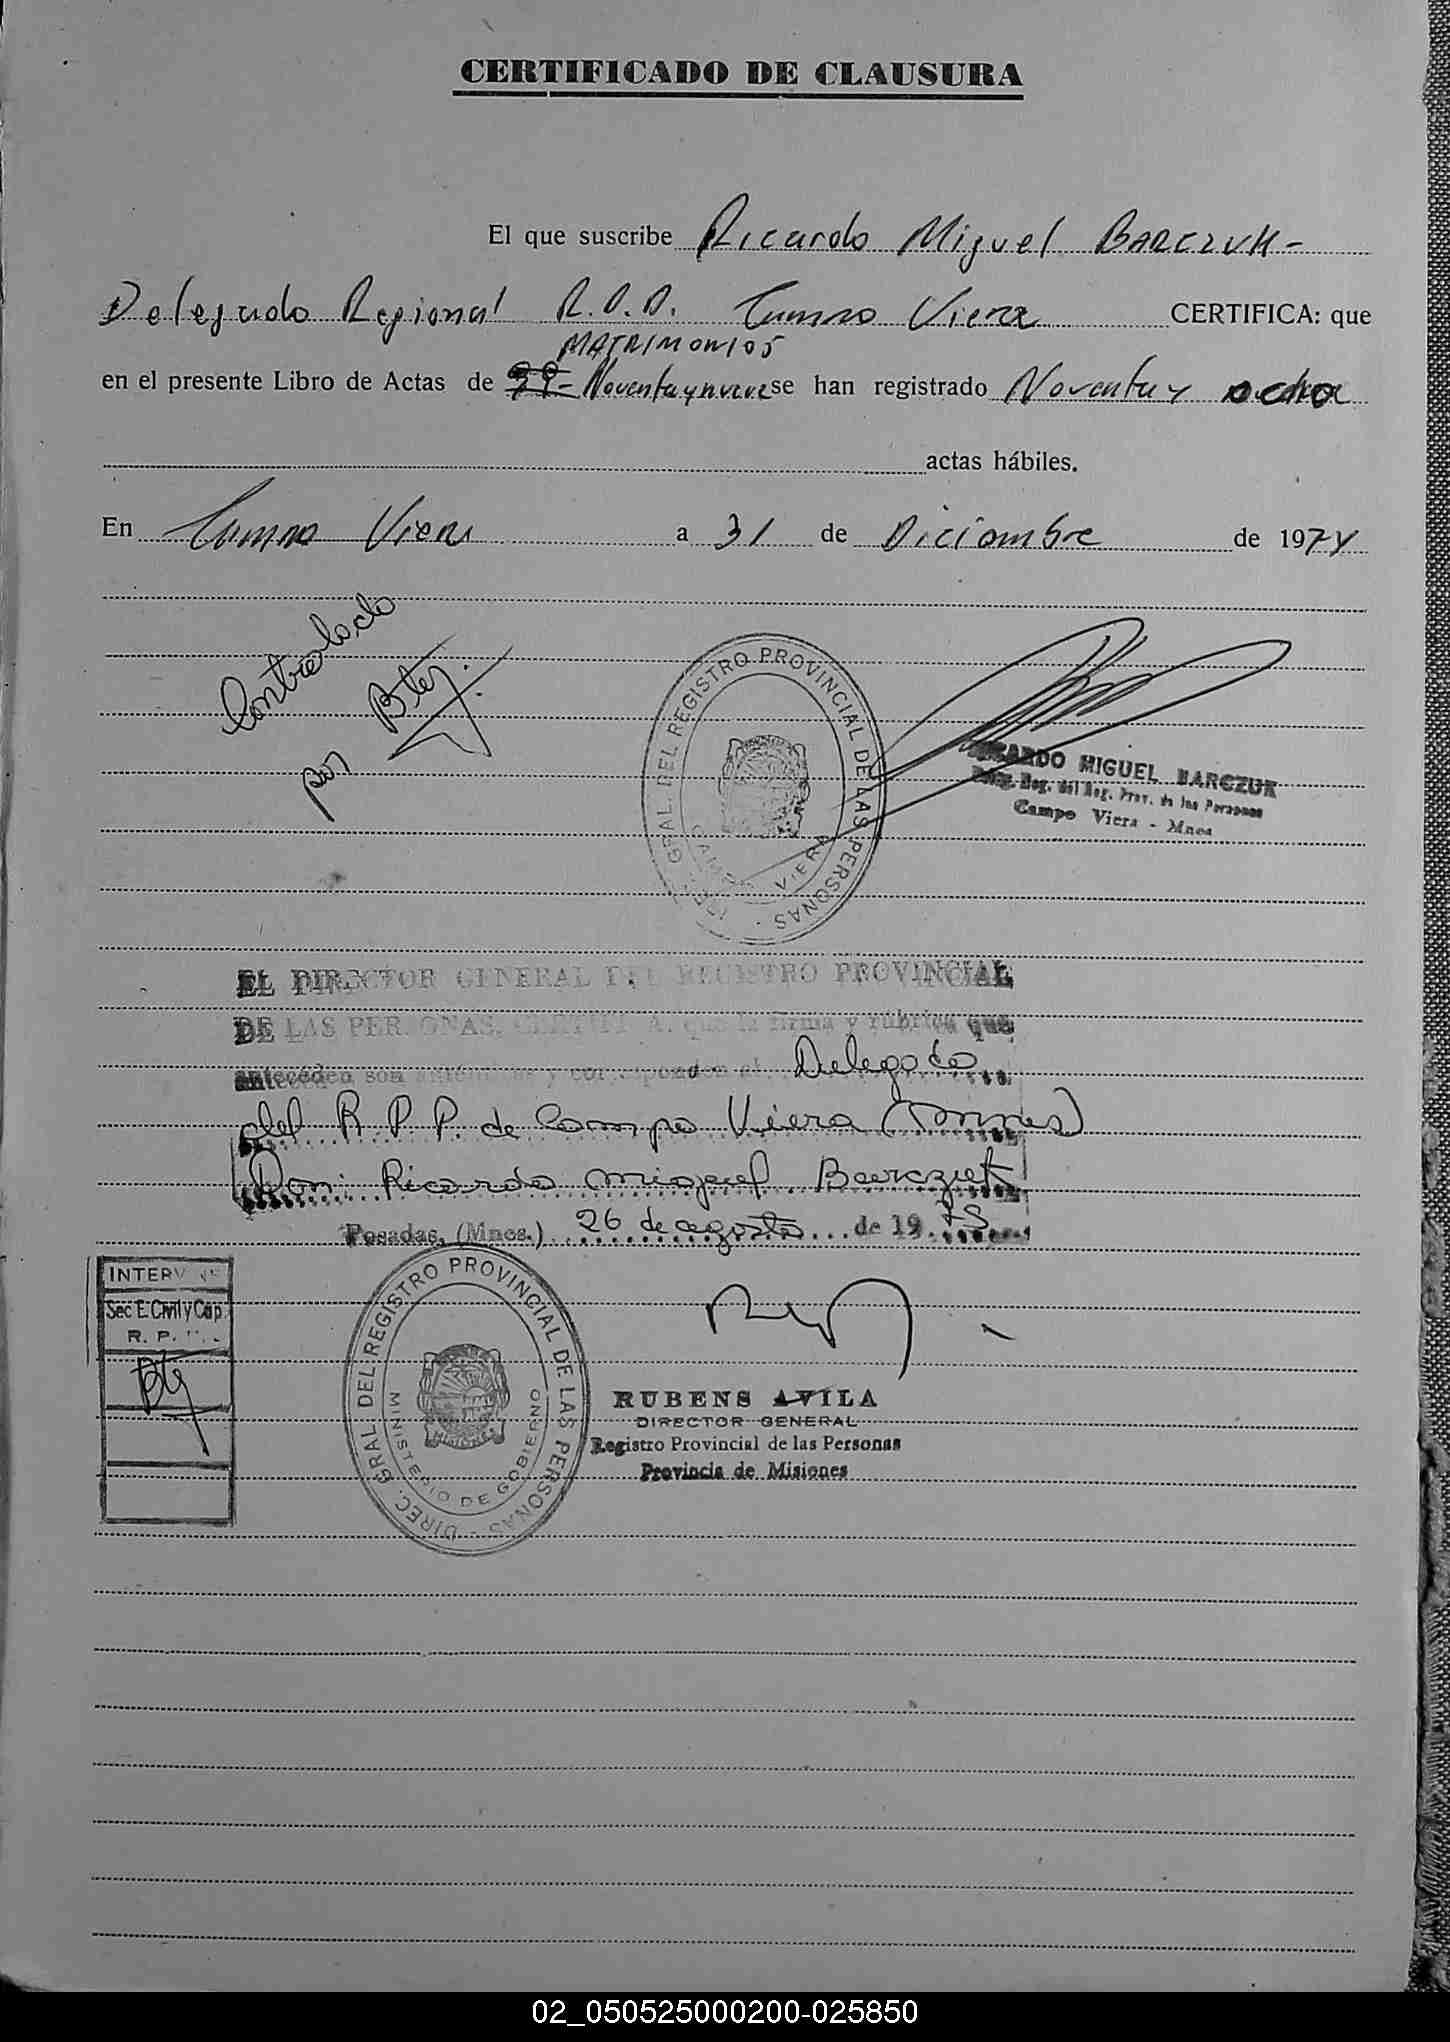 CERTIFICADO DE CLAUSURA
El que suscribe Ricardo Miguel BARCZUK-
Delegado Regional R.P.P. Campo Viera CERTIFICA: que
MATRIMONIOS
en el presente Libro de Actas de 99- Noventa y nueve se han registrado Noventa y ocho
actas hábiles.
En Campo Viera a 31 de Diciembre de 1974
Controlado
por Btej.
DEL REGISTRO PROVINCIAL DE LAS PERSONAS
CAMPO VIERA
RICARDO MIGUEL BARCZUK
Deleg. Reg. del Reg. Prov. de las Personas
Campo Viera - Mnes
EL DIRECTOR GENERAL DEL REGISTRO PROVINCIAL
DE LAS PERSONAS, CERTIFICA, que la firma y rúbrica que
anteceden son auténticas y corresponden al Delegado
del R.P.P. de Campo Viera (Mnes)
Don: Ricardo Miguel Barczuk
Posadas, (Mnes.) 26 de agosto de 1975
INTERVINO
Sec E. Civil y Cap.
R. P.
DIREC. GRAL. DEL REGISTRO PROVINCIAL DE LAS PERSONAS -
MINISTERIO DE GOBIERNO
RUBENS AVILA
DIRECTOR GENERAL
Registro Provincial de las Personas
Provincia de Misiones
02_050525000200-025850